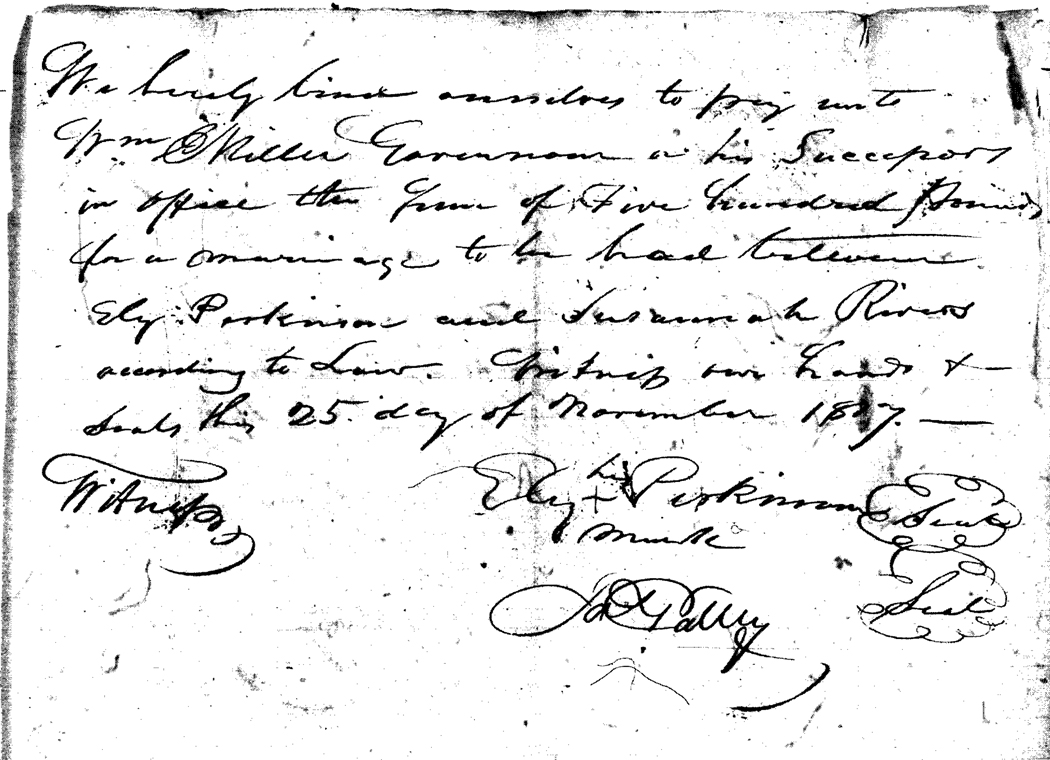 We hereby bind ourselves to pay unto
Wm Miller Governour or his Successors
in office the Sum of Five hundred Pounds
for a marriage to be had between
Ely Perkinson and Susannah Rivers
according to Law. Witness our hands & —
Seals this 25 day of November 1817. —
Witness
Ely his + Perkinson Seal
mark
Seal